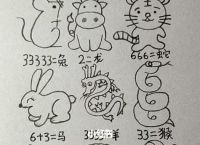 33333=兔 2=龙 666=蛇
6+3=马 33=猴
小红书